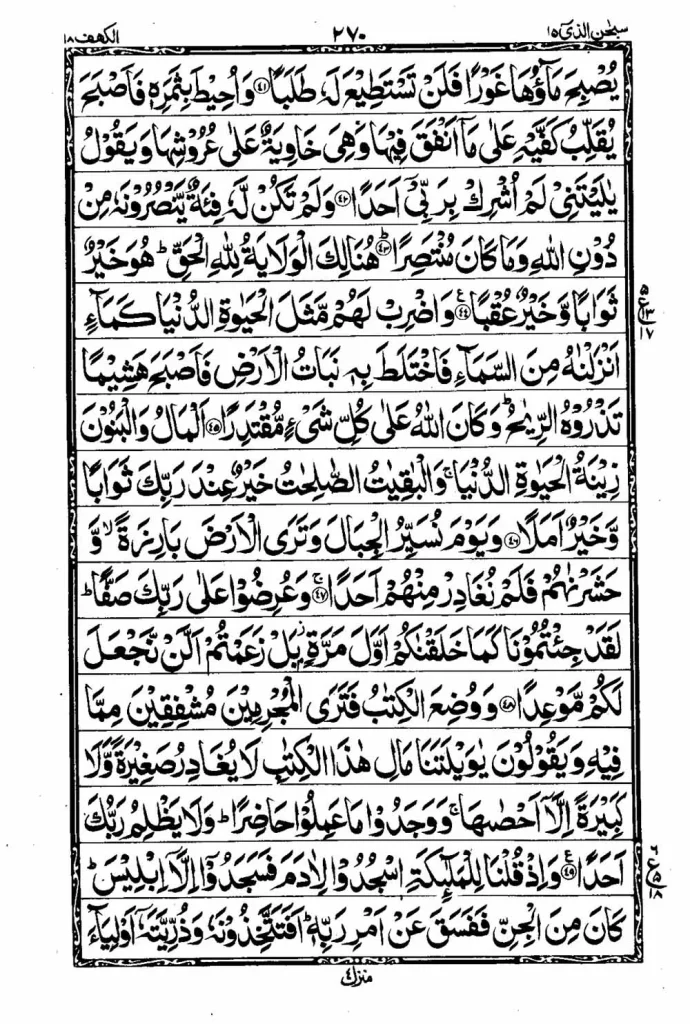 سبحٰن الذیٓ ١٥ ٢٧٠ الكهف ١٨
يُصْبِحَ مَآؤُهَا غَوْرًا فَلَنْ تَسْتَطِيْعَ لَهٗ طَلَبًا ﴿۴۱﴾ وَاُحِيْطَ بِثَمَرِهٖ فَاَصْبَحَ
يُقَلِّبُ كَفَّيْهِ عَلٰى مَاۤ اَنْفَقَ فِيْهَا وَهِيَ خَاوِيَةٌ عَلٰى عُرُوْشِهَا وَيَقُوْلُ
يٰلَيْتَنِيْ لَمْ اُشْرِكْ بِرَبِّيْۤ اَحَدًا ﴿۴۲﴾ وَلَمْ تَكُنْ لَّهٗ فِئَةٌ يَّنْصُرُوْنَهٗ مِنْ
دُوْنِ اللّٰهِ وَمَا كَانَ مُنْتَصِرًا ؕ﴿۴۳﴾ هُنَالِكَ الْوَلَايَةُ لِلّٰهِ الْحَقِّ ؕ هُوَ خَيْرٌ
ثَوَابًا وَّخَيْرٌ عُقْبًا ﴿۴۴﴾ؑ وَاضْرِبْ لَهُمْ مَّثَلَ الْحَيٰوةِ الدُّنْيَا كَمَآءٍ
٥
ع ١٣
١٧
اَنْزَلْنٰهُ مِنَ السَّمَآءِ فَاخْتَلَطَ بِهٖ نَبَاتُ الْاَرْضِ فَاَصْبَحَ هَشِيْمًا
تَذْرُوْهُ الرِّيٰحُ ؕ وَكَانَ اللّٰهُ عَلٰى كُلِّ شَيْءٍ مُّقْتَدِرًا ﴿۴۵﴾ اَلْمَالُ وَالْبَنُوْنَ
زِيْنَةُ الْحَيٰوةِ الدُّنْيَا ۚ وَالْبٰقِيٰتُ الصّٰلِحٰتُ خَيْرٌ عِنْدَ رَبِّكَ ثَوَابًا
وَّخَيْرٌ اَمَلًا ﴿۴۶﴾ وَيَوْمَ نُسَيِّرُ الْجِبَالَ وَتَرَى الْاَرْضَ بَارِزَةً ۙ وَّ
حَشَرْنٰهُمْ فَلَمْ نُغَادِرْ مِنْهُمْ اَحَدًا ۚ﴿۴۷﴾ وَعُرِضُوْا عَلٰى رَبِّكَ صَفًّا ؕ
لَقَدْ جِئْتُمُوْنَا كَمَا خَلَقْنٰكُمْ اَوَّلَ مَرَّةٍۭ ؗ بَلْ زَعَمْتُمْ اَلَّنْ نَّجْعَلَ
لَكُمْ مَّوْعِدًا ﴿۴۸﴾ وَوُضِعَ الْكِتٰبُ فَتَرَى الْمُجْرِمِيْنَ مُشْفِقِيْنَ مِمَّا
فِيْهِ وَيَقُوْلُوْنَ يٰوَيْلَتَنَا مَالِ هٰذَا الْكِتٰبِ لَا يُغَادِرُ صَغِيْرَةً وَّلَا
كَبِيْرَةً اِلَّاۤ اَحْصٰىهَا ۚ وَوَجَدُوْا مَا عَمِلُوْا حَاضِرًا ؕ وَلَا يَظْلِمُ رَبُّكَ
اَحَدًا ﴿۴۹﴾ؑ وَاِذْ قُلْنَا لِلْمَلٰٓئِكَةِ اسْجُدُوْا لِاٰدَمَ فَسَجَدُوْۤا اِلَّاۤ اِبْلِيْسَ ؕ
٦
ع ٥
١٨
كَانَ مِنَ الْجِنِّ فَفَسَقَ عَنْ اَمْرِ رَبِّهٖ ؕ اَفَتَتَّخِذُوْنَهٗ وَذُرِّيَّتَهٗۤ اَوْلِيَآءَ
منزل ٤